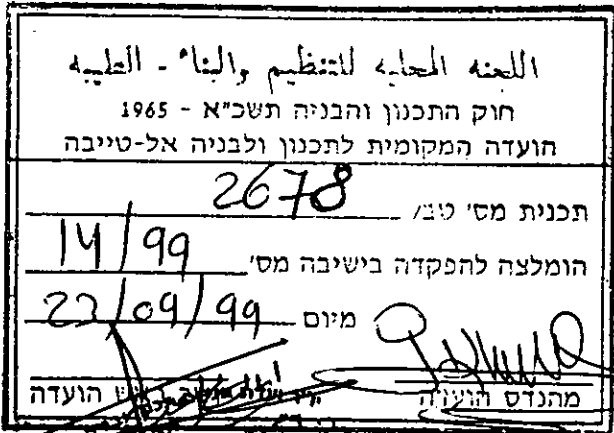 اللجنه المحليه للتنظيم والبناء - الطيبه
חוק התכנון והבניה תשכ"א - 1965
הועדה המקומית לתכנון ולבניה אל-טייבה
תכנית מס' טב/ 2678
הומלצה להפקדה בישיבה מס' 14/99
מיום 23/09/99
מהנדס הועדה הועדה